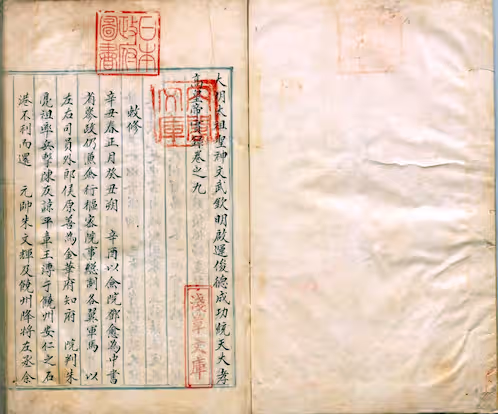 日本政府圖書
大明太祖聖神文武欽明啟運俊德成功統天大孝
高皇帝實錄卷之九
敕修
辛丑春正月癸丑朔　辛酉以僉院鄧愈為中書
省參政仍兼僉行樞密院事緫制各翼軍馬　以
左右司員外郎侯原善為金華府知府　院判朱
亮祖率兵擊陳友諒平章王溥于饒州安仁之石
港不利而還　元帥朱文輝及饒州降將左丞余
淺草文庫